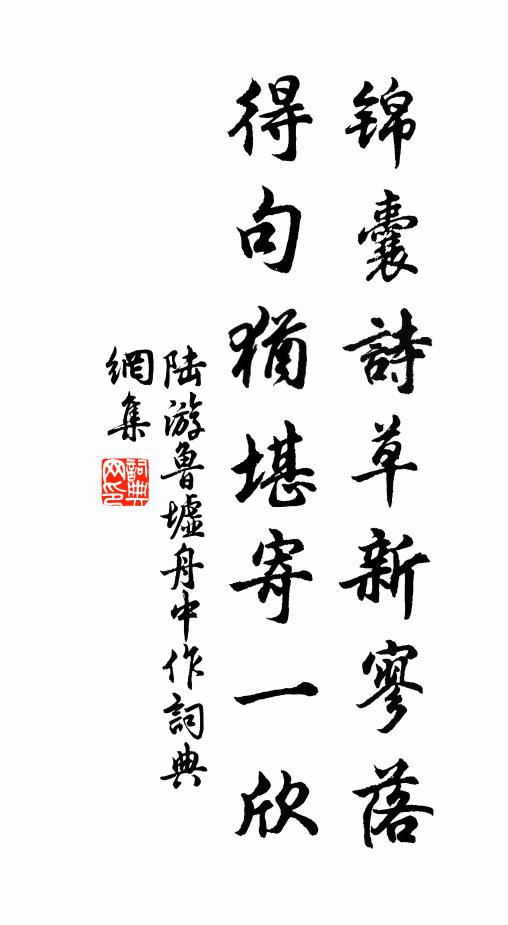 锦囊詩草新寥落
得句猶堪寄一欣
陆游魯墟舟中作詞典
網集
詞典網印